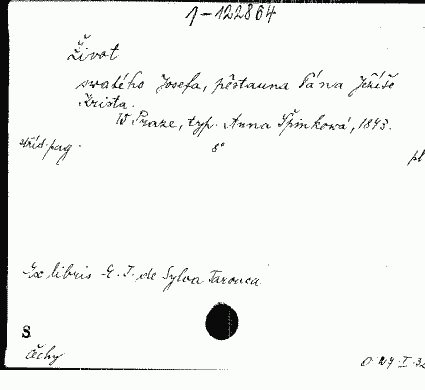 1-122864
Život
swatého Josefa, pěstauna Pána Ježíše
Krista.
W Praze, typ. Anna Špinková, 1843.
stříd. pag. 8° pl
Ex libris E. T. de Sylva Tarouca
S
Čechy